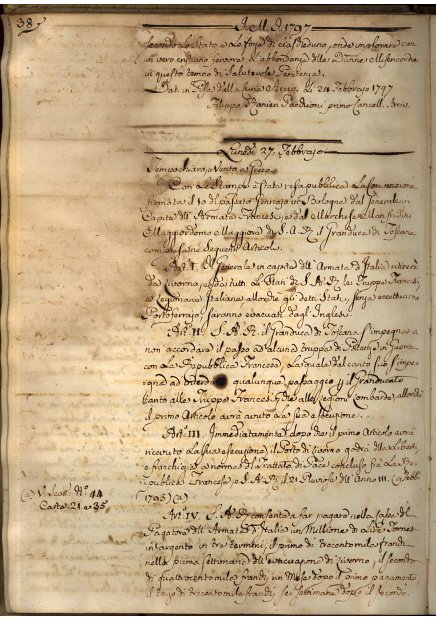 38
A. M. D. 1797
secondo lo stato, e le forze di ciascheduno, onde implorare con
un vero cristiano fervore l'abbondanza delle Divine Misericordie
in questo tempo di salutevole Penitenza.
Dat. in Pisa dalla Curia Arciv. li 24 Febbrajo 1797
Filippo Ranieri primo Cancell. Arciv.
Lunedì 27. Febbrajo
Tempo chiaro, Vento, e Greco
Con le Stampe è stata resa pubblica la Convenzione
firmata il dì del passato Gennajo in Bologna dal Generale in
Capite dell'Armata Francese, e dal Marchese Manfredini
Maggiordomo Maggiore di S. A. R. il Granduca di Toscana
con i seguenti Articoli.
Art. I. Il Generale in capite dell'Armata d'Italia ritirerà
da Livorno, e da tutti li Stati di S. A. R. le Truppe Francesi
e Legionarie Italiane allorchè gli detti Stati, senza eccettuare
Portoferrajo, saranno evacuati dagl'Inglesi.
Art. II. S. A. R. il Granduca di Toscana s'impegna a
non accordare il passo ad alcuna truppa di Potenza in Guerra
con la Repubblica Francese, la quale dal canto suo s'impe=
gna ad qualunque passaggio per il Granducato
tanto alle Truppe Francesi, che alle Legioni Lombarde, allorchè
il primo Articolo avrà avuto la sua esecuzione.
Art. III. Immediatamente dopo che il primo Articolo avrà
ricevuto la sua esecuzione, il Porto di Livorno godrà della libertà,
e franchigia a norma del Trattato di Pace concluso fra la Re=
pubblica Francese e S. A. R. li 21 Piovoso dell'Anno III. (9. Febb.
1795) (a)
(a) V. Scar. N.º 44
Carte 21. e 35
Art. IV. S. A. R. consentirà a far pagare nella cassa del
Pagatore dell'Armata d'Italia un Millione di Lire Tornesi
in argento in tre termini, il primo di trecentomila franchi
nella prima settimana dell'evacuazione di Livorno, il secondo
di quattrocentomila franchi, un Mese dopo il primo pagamento,
il terzo di trecentomila franchi, sei settimane dopo il secondo.